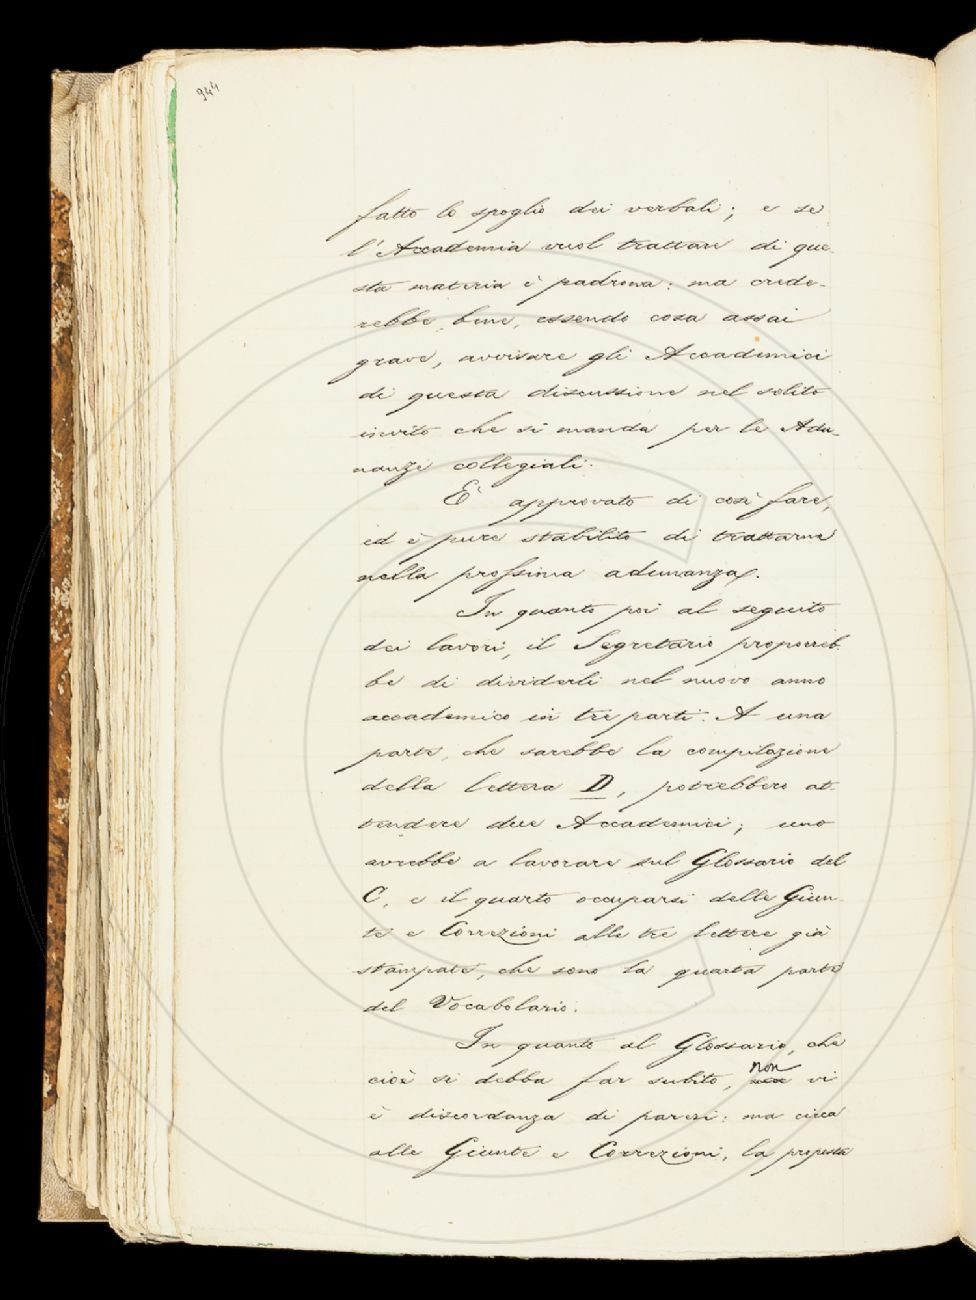 944
fatto lo spoglio dei verbali; e se
l'Accademia vuol trattare di que-
sta materia è padrona: ma crede-
rebbe bene, essendo cosa assai
grave, avvisare gli Accademici
di questa discussione nel solito
invito che si manda per le Adu-
nanze collegiali.
È approvato di così fare,
ed è pure stabilito di trattarne
nella prossima adunanza.
In quanto poi al seguito
dei lavori, il Segretario proporreb-
be di dividerli nel nuovo anno
accademico in tre parti. A una
parte, che sarebbe la compilazione
della lettera D, potrebbero at-
tendere due Accademici; uno
avrebbe a lavorare sul Glossario del
C, e il quarto occuparsi delle Giun-
te e Correzioni alle tre lettere già
stampate, che sono la quarta parte
del Vocabolario.
In quanto al Glossario, che
cioè si debba far subito, non vi
è discordanza di pareri: ma circa
alle Giunte e Correzioni, la proposta